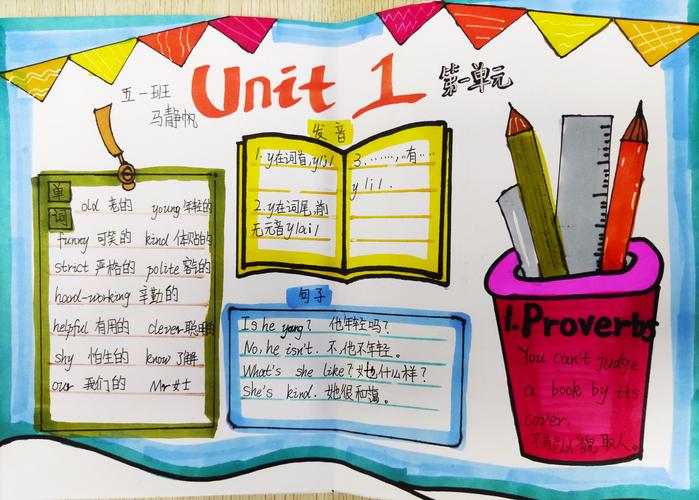 Unit 1 第一单元
五一班
马静帆
发音
1. y在词首,y
2. y在词尾,前
无元音y
3. ……,,有…
y
单词
old 老的 young 年轻的
funny 可笑的 kind 体贴的
strict 严格的 polite 客气的
hoad-working 辛勤的
helpful 有用的 clever 聪明的
shy 怕生的 know 了解
our 我们的 Mr 女士
句子
Is he young? 他年轻吗?
No, he isn't. 不,他不年轻。
What's she like? 她什么样?
She's kind. 她很和蔼。
1. Proverbs
You can't judge
a book by its
cover.
不能以貌取人。